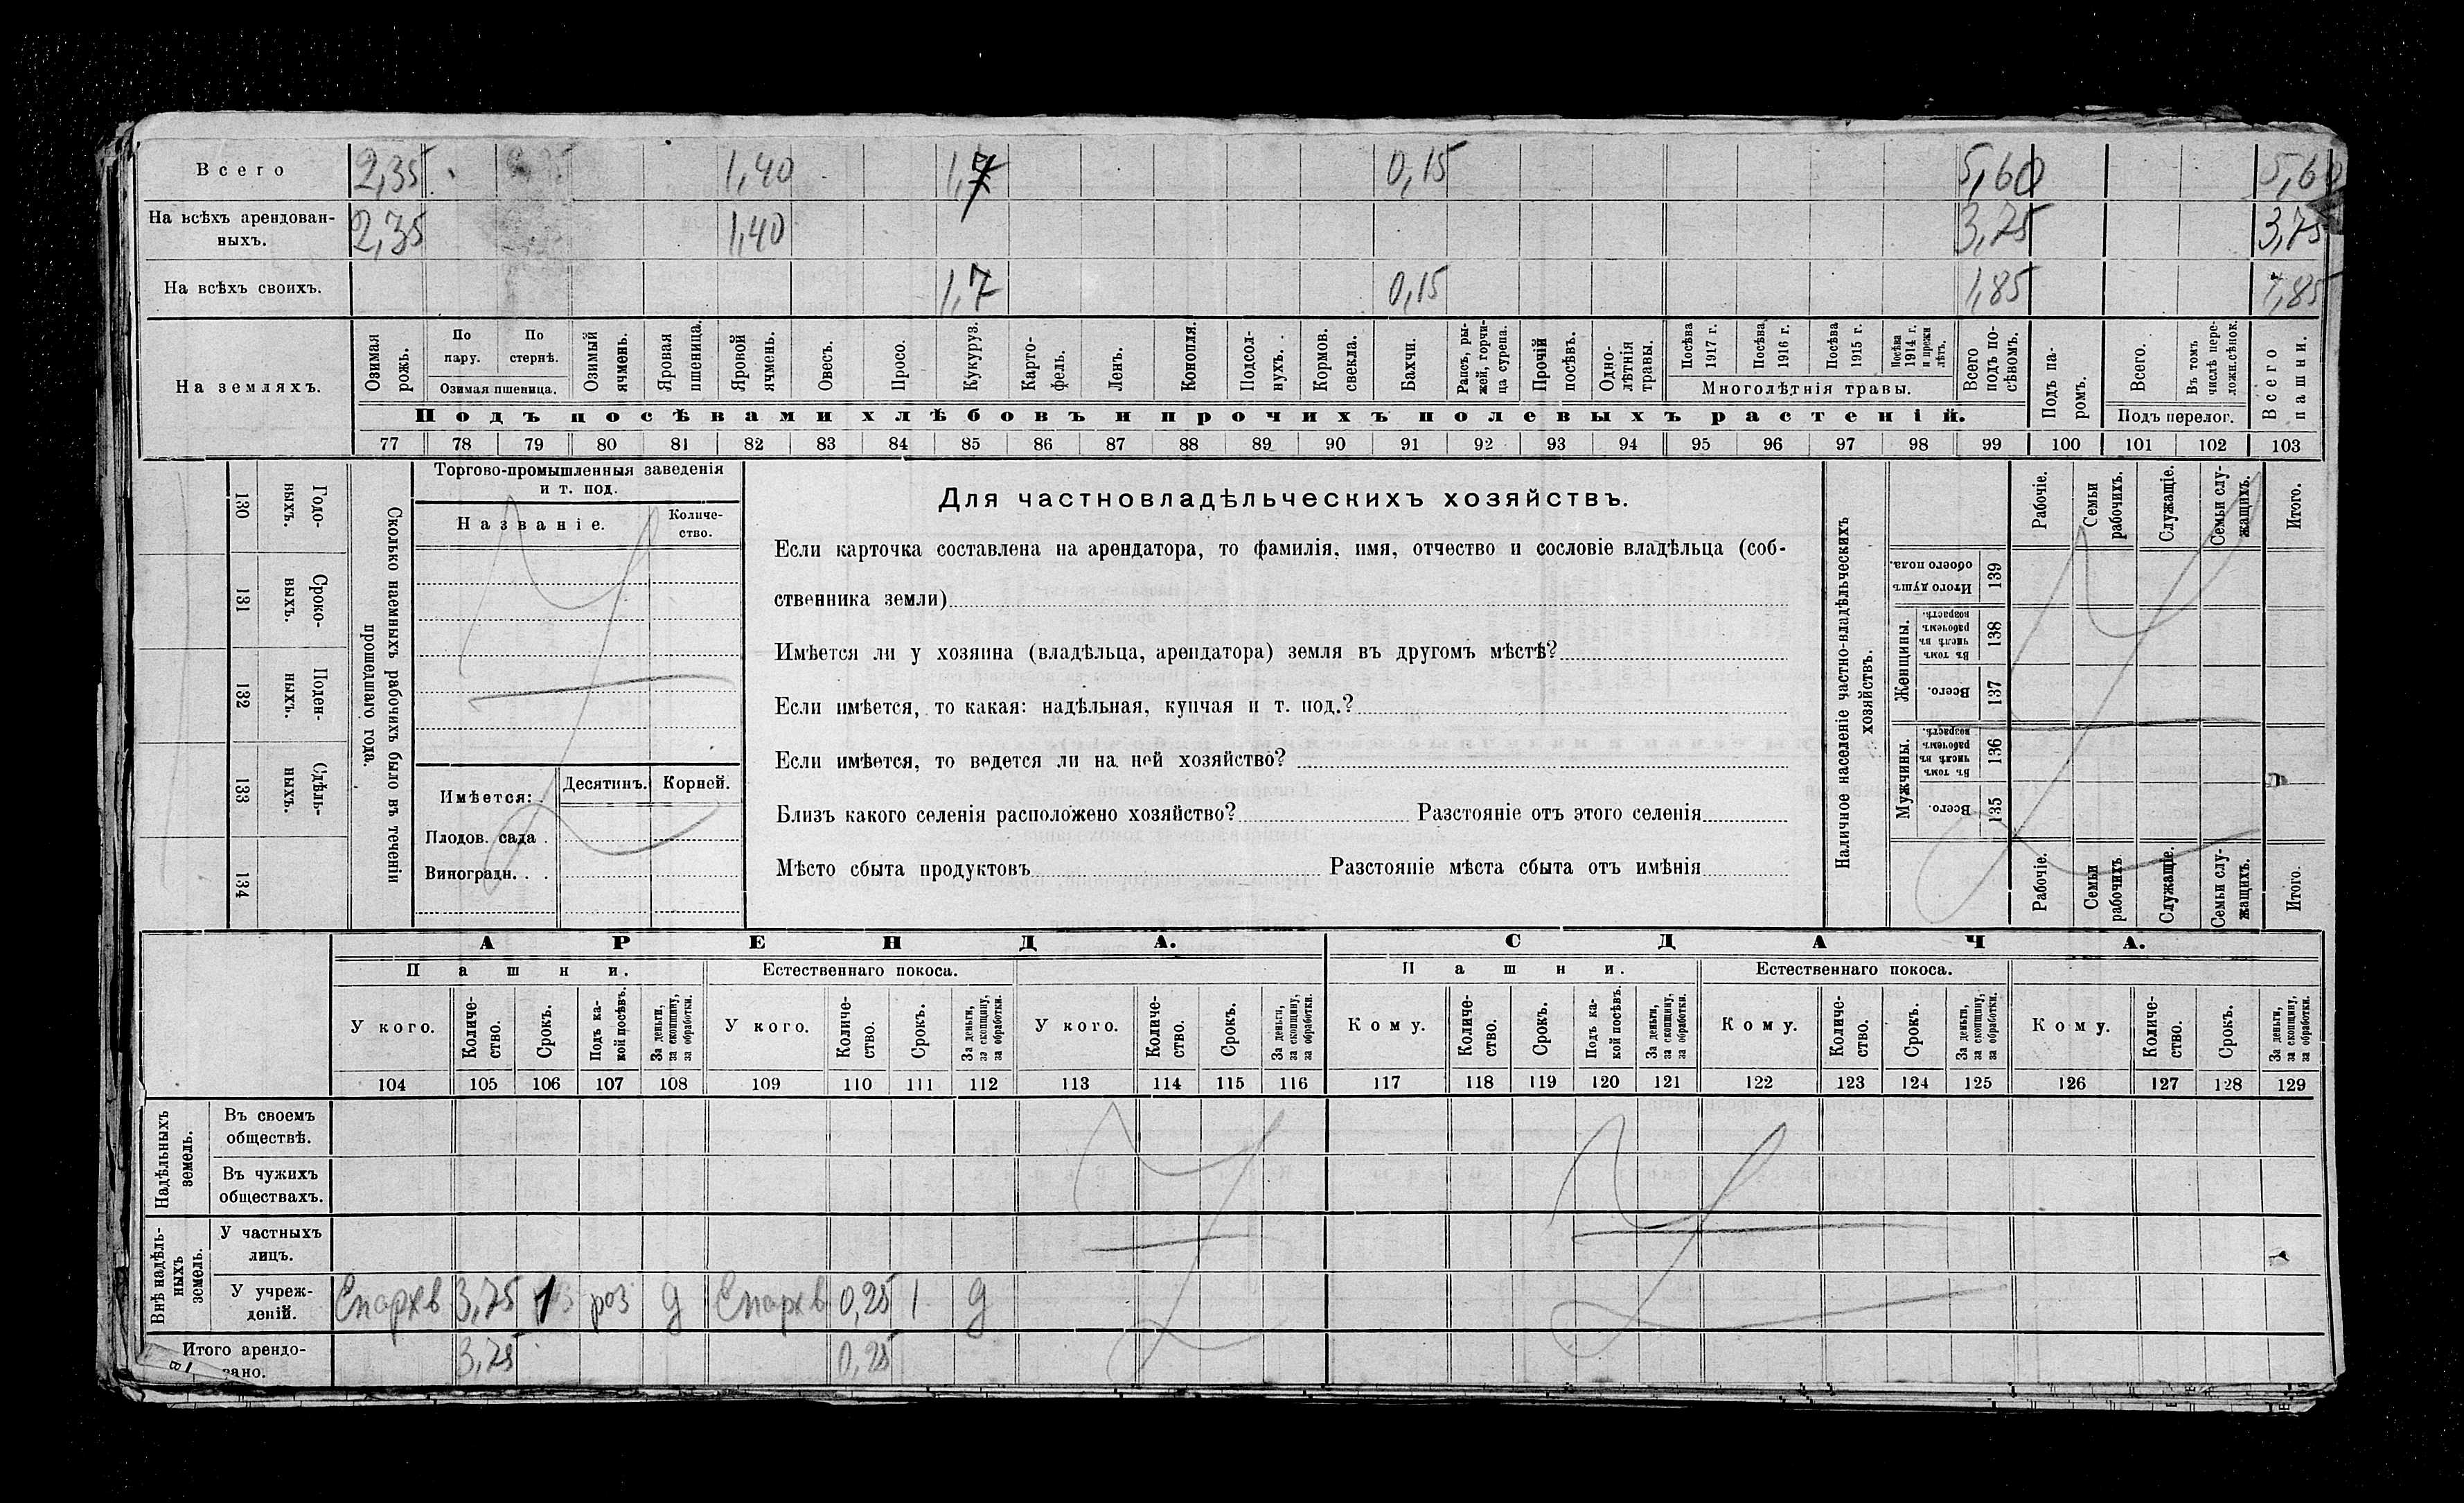 Всего 2,35 1,40 1,7 0,15 5,60 5,60
На всѣхъ арендован-
ныхъ. 2,35 1,40 3,75 3,75
На всѣхъ своихъ. 1,7 0,15 1,85 1,85
На земляхъ.
Озимая рожь.
По пару.
По стернѣ.
Озимая пшеница.
Озимый ячмень.
Яровая пшеница.
Яровой ячмень.
Овесъ.
Просо.
Кукуруз.
Карто-
фель.
Ленъ.
Конопля.
Подсол-
нухъ.
Кормов.
свекла.
Бахчи.
Рапсъ, ры-
жей, горчи-
ца сурепа.
Прочій посѣвъ.
Одно-
лѣтнія
травы.
Посѣва 1917 г.
Посѣва 1916 г.
Посѣва 1915 г.
Посѣва 1914 г. и прежн лѣтъ.
Многолѣтнія травы.
Всего подъ по-
сѣвомъ.
Подъ па-
ромъ.
Всего.
Въ томъ числѣ пере-
ложн.сѣнок.
Подъ перелог.
Всего пашни.
Подъ посѣвами хлѣбовъ и прочихъ полевыхъ растеній.
77 78 79 80 81 82 83 84 85 86 87 88 89 90 91 92 93 94 95 96 97 98 99 100 101 102 103
130 Годо-
выхъ.
131 Сроко-
выхъ.
132 Поден-
ныхъ.
133 Сдѣль-
ныхъ.
134
Сколько наемныхъ рабочихъ было въ теченіи
прошедшаго года.
Торгово-промышленныя заведенія
и т. под.
Названіе.
Количе-
ство.
Имѣется:
Десятинъ.
Корней.
Плодов. сада .
Виноградн. . .
Для частновладѣльческихъ хозяйствъ.
Если карточка составлена на арендатора, то фамилія, имя, отчество и сословіе владѣльца (соб-
ственника земли)
Имѣется ли у хозяина (владѣльца, арендатора) земля въ другомъ мѣстѣ?
Если имѣется, то какая: надѣльная, купчая и т. под.?
Если имѣется, то ведется ли на ней хозяйство?
Близъ какого селенія расположено хозяйство? Разстояніе отъ этого селенія
Мѣсто сбыта продуктовъ Разстояніе мѣста сбыта отъ имѣнія
Наличное населеніе частно-владѣльческихъ
хозяйствъ.
Рабочіе.
Семьи рабочихъ.
Служащіе.
Семьи слу-
жащихъ.
Итого.
Итого душъ обоего пола. 139
Женщины.
Въ томъ числѣ въ рабочемъ возрастѣ. 138
Всего. 137
Мужчины.
Въ томъ числѣ въ рабочемъ возрастѣ. 136
Всего. 135
Рабочіе.
Семьи рабочихъ
Служащіе.
Семьи слу-
жащихъ.
Итого.
АРЕНДА. СДАЧА.
Пашни. Естественнаго покоса. Пашни. Естественнаго покоса.
У кого.
Количе-
ство.
Срокъ.
Подъ ка-
кой посѣвъ.
За деньги,
за скопщину,
за обработки.
У кого.
Количе-
ство.
Срокъ.
За деньги,
за скопщину,
за обработки.
У кого.
Количе-
ство.
Срокъ.
За деньги,
за скопщину,
за обработки.
Кому.
Количе-
ство.
Срокъ.
Подъ ка-
кой посѣвъ.
За деньги,
за скопщину,
за обработки.
Кому.
Количе-
ство.
Срокъ.
За деньги,
за скопщину,
за обработки.
Кому.
Количе-
ство.
Срокъ.
За деньги,
за скопщину,
за обработки.
104 105 106 107 108 109 110 111 112 113 114 115 116 117 118 119 120 121 122 123 124 125 126 127 128 129
Надѣльныхъ
земель.
Въ своемъ
обществѣ.
Въ чужихъ
обществахъ.
Внѣ надѣль-
ныхъ
земель.
У частныхъ
лицъ.
У учреж-
деній. Епархв 3,75 1 роз д Епархв 0,25 1 д
Итого арендо-
вано. 3,75 0,25